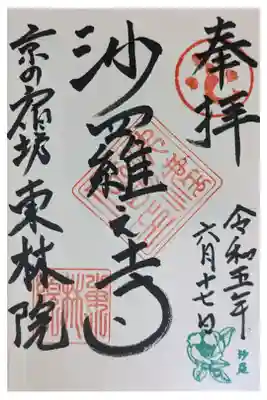 奉拝
令和五年
六月十七日
沙羅之寺
京の宿坊
東林院
沙羅